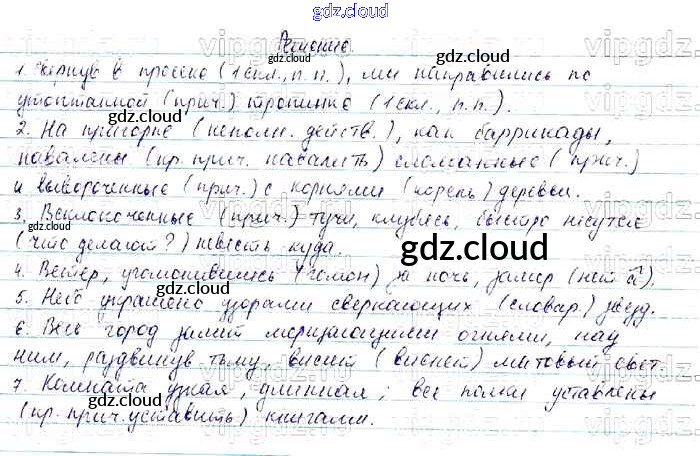 gdz.cloud
Решение.
1. Свернув в просеке (1 скл., п.п.), мы направились по
утоптанной (прич.) тропинке (1 скл., п.п.).
2. На пригорке (неполн. действ.), как баррикады,
навалены (кр. прич. навалить) сломанные (прич.)
и вывороченные (прич.) с корнями (корень) деревья.
3. Всклокоченные (прич.) тучи, клубясь, быстро несутся
(что делают?) невесть куда.
4. Ветер, угомонившись (гомон) за ночь, замер (нет а).
5. Небо украшено узорами сверкающих (словар.) звёзд.
6. Весь город залит мерцающими огнями, над
ним, раздвинув тьму, висит (виснет) матовый свет.
7. Комната узкая, длинная; все полки уставлены
(кр. прич. уставить) книгами.